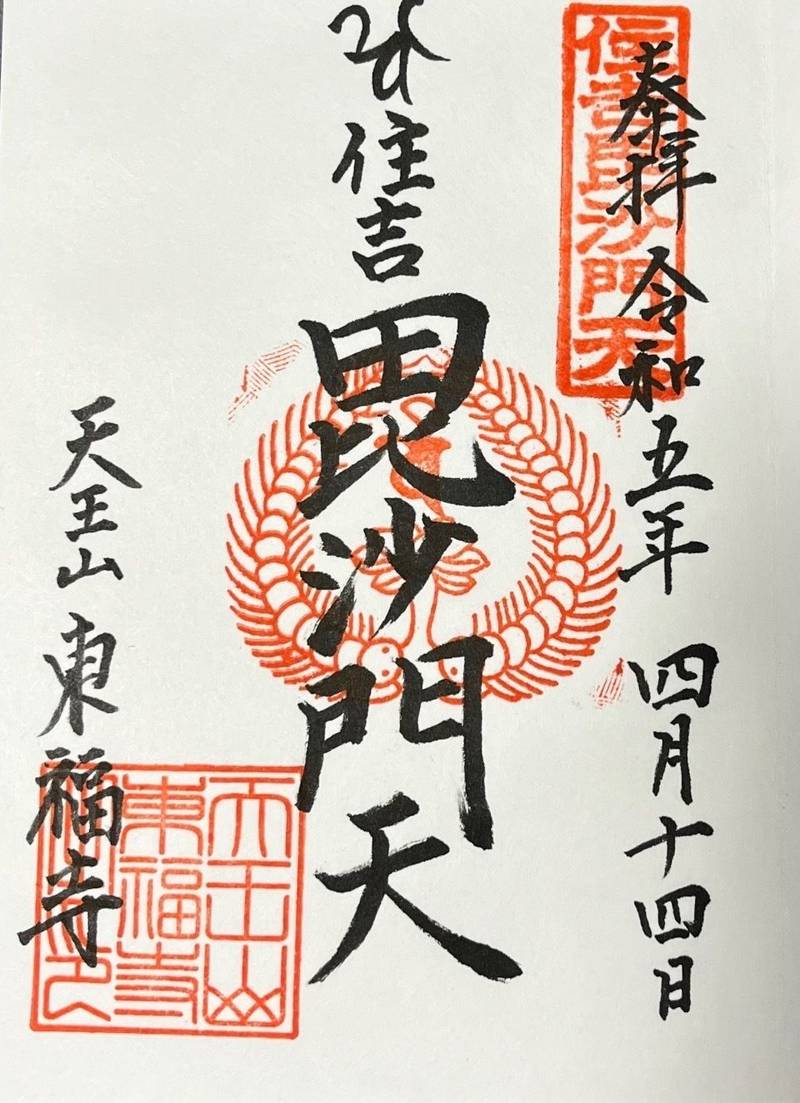 奉拝 令和五年 四月十四日
住吉毘沙門天
住吉
毘沙門天
天王山 東福寺
天王山
東福寺